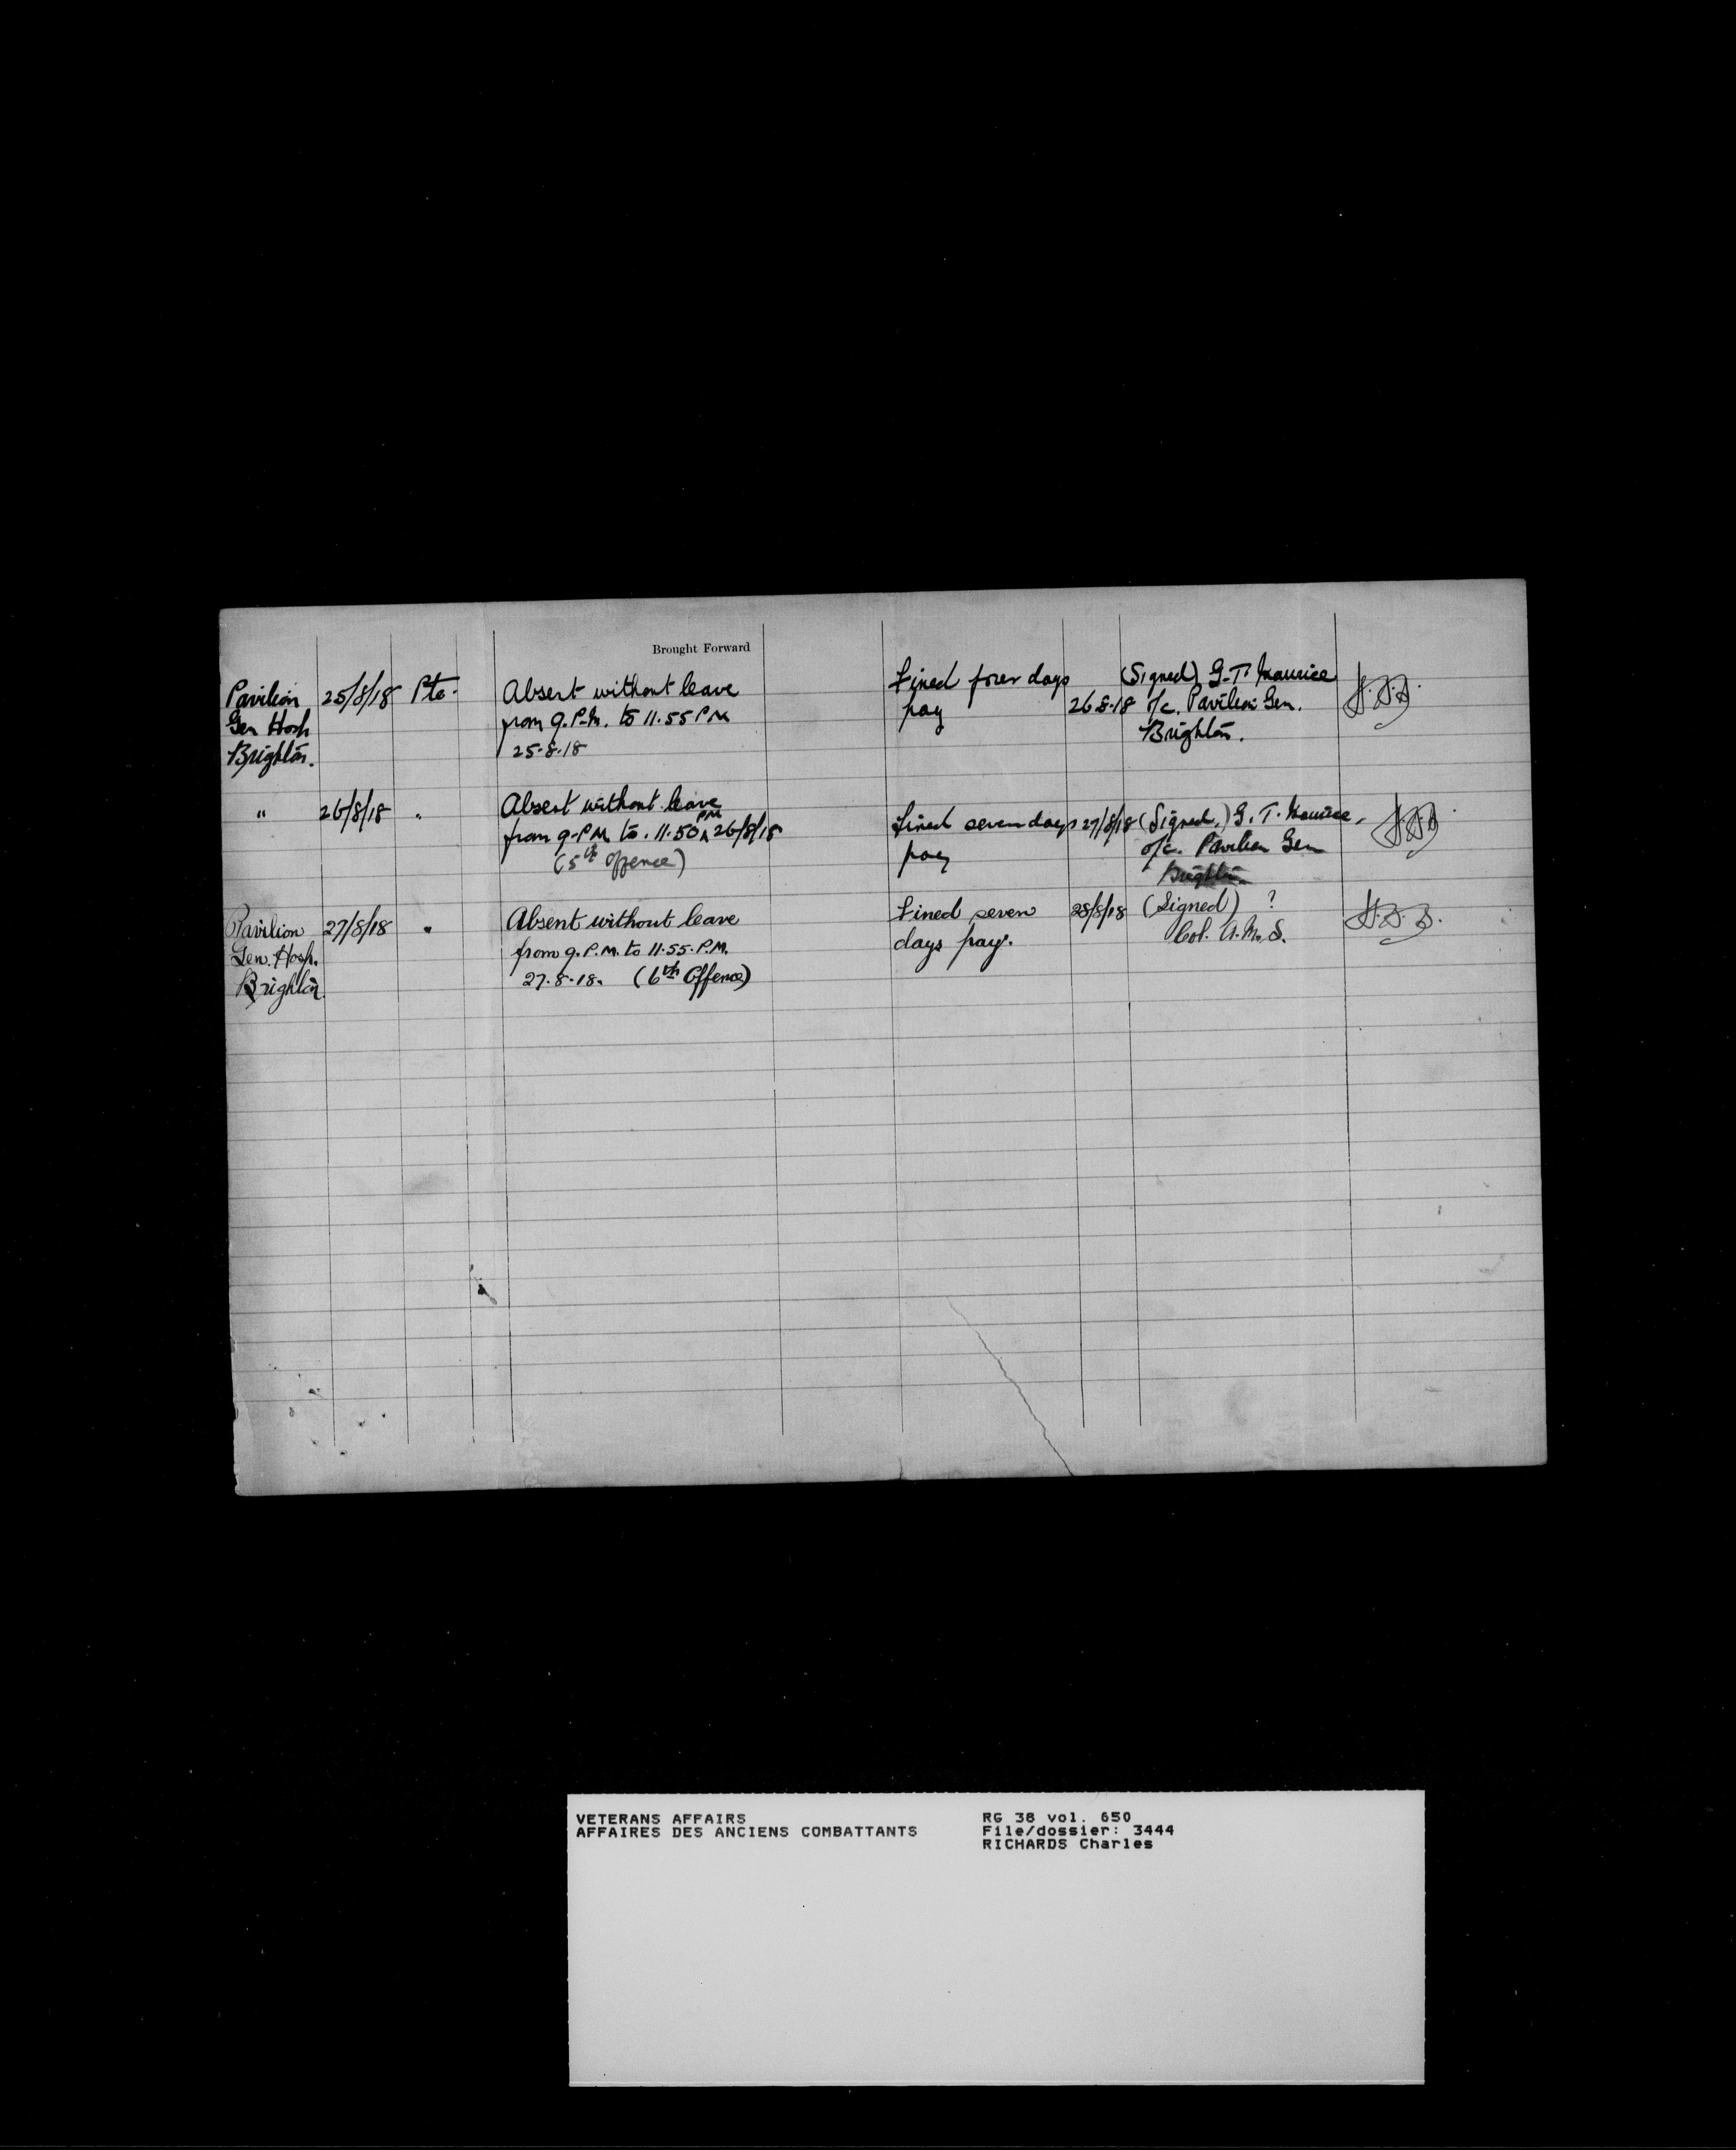 Brought Forward
Pavilion 25/8/18 Pte. Absent without leave Fined four days (Signed) G. T. Maurice
Gen Hosp from 9. P.M. to 11.55 PM pay 26.8.18 o/c. Pavilion Gen.
Brighton. 25.8.18 Brighton.
" 26/8/18 " Absent without leave
from 9. PM to. 11.50 PM 26/8/18 Fined seven days 27/8/18 (Signed.) G. T. Maurice.
(5th Offence) pay o/c. Pavilion Gen
Brighton
Pavilion 27/8/18 " Absent without leave Fined seven 28/8/18 (Signed) ?
Gen. Hosp. from 9. P.M. to 11.55. P.M. days pay. Col. A.M.S.
Brighton. 27.8.18. (6th Offence)
VETERANS AFFAIRS RG 38 vol. 650
AFFAIRES DES ANCIENS COMBATTANTS File/dossier: 3444
RICHARDS Charles